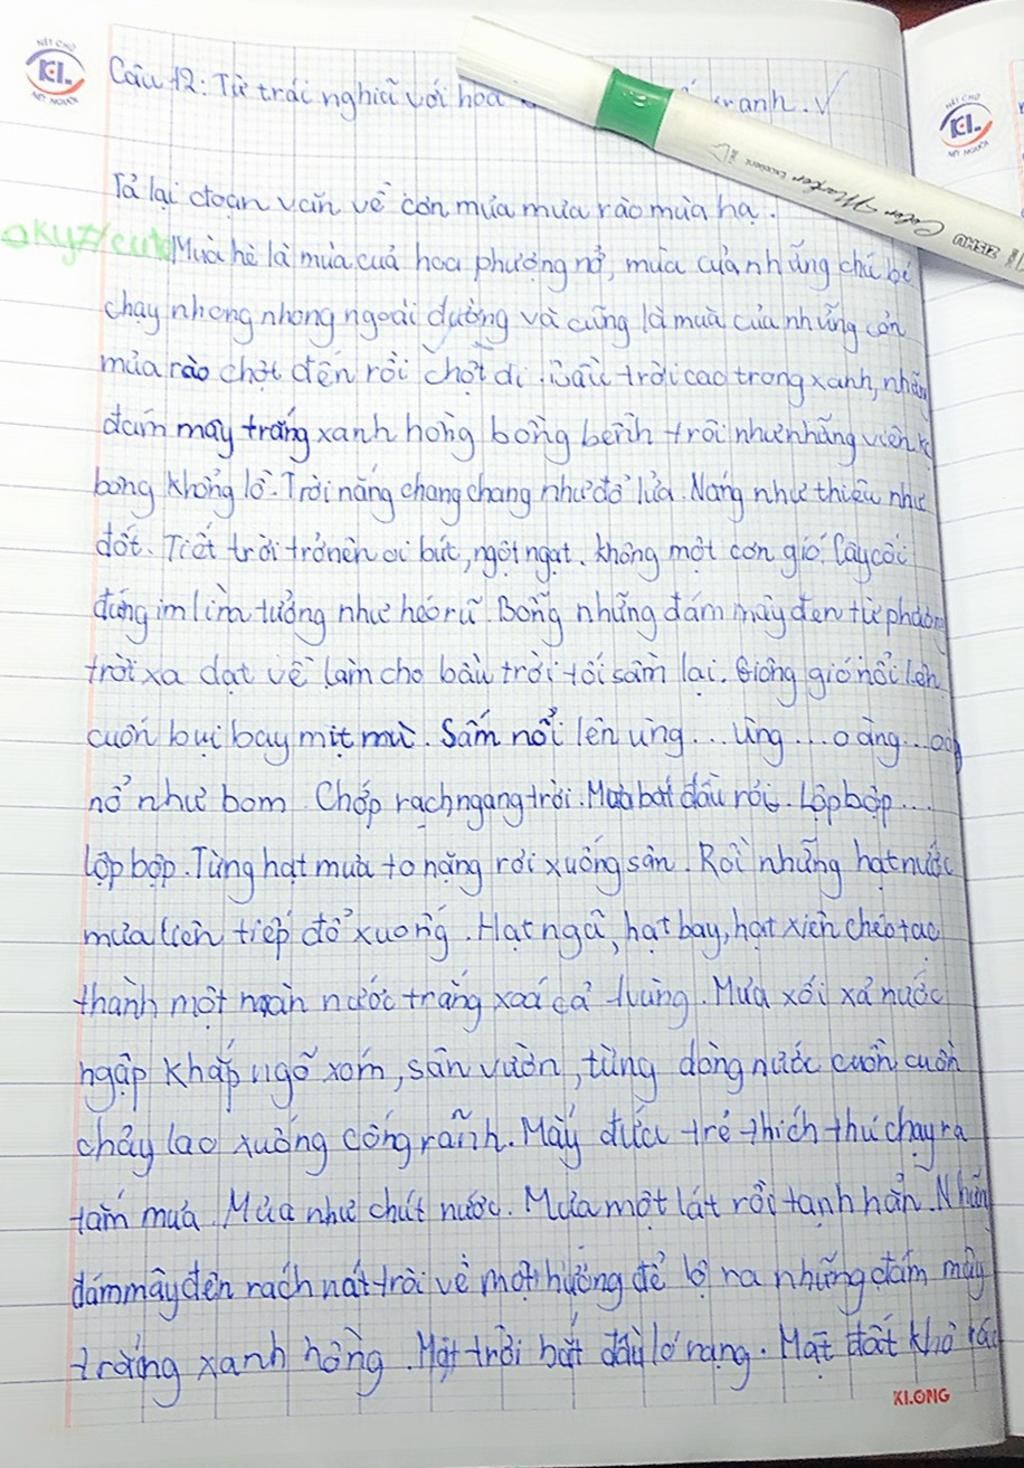 NÉT CHỮ
KL
NẾT NGƯỜI
Câu 12: Từ trái nghĩa với hoà tranh. √
NÉT CHỮ
KL
NẾT NGƯỜI
Color Marker
ZISHU
Tả lại đoạn văn về cơn mưa mưa rào mùa hạ.
Mùa hè là mùa của hoa phượng nở, mùa của những chú bé
chạy nhong nhong ngoài đường và cũng là mùa của những cơn
mưa rào chợt đến rồi chợt đi. Bầu trời cao trong xanh, những
đám mây trắng xanh hồng bồng bềnh trôi như những viên
bông khổng lồ. Trời nắng chang chang như đổ lửa. Nắng như thiêu như
đốt. Tiết trời trở nên oi bức, ngột ngạt. không một cơn gió. Cây cối
đứng im lìm tưởng như héo rũ. Bỗng những đám mây đen từ phương
trời xa dạt về làm cho bầu trời tối sầm lại. Giông gió nổi lên
cuốn bụi bay mịt mù. Sấm nổi lên ùng...ùng...oàng...
nổ như bom. Chớp rạch ngang trời. Mưa bắt đầu rơi. Lộp bộp...
lộp bộp. Từng hạt mưa to nặng rơi xuống sân. Rồi những hạt nước
mưa liên tiếp đổ xuống. Hạt ngã, hạt bay, hạt xiên chéo tạo
thành một màn nước trắng xoá cả vùng. Mưa xối xả nước
ngập khắp ngõ xóm, sân vườn, từng dòng nước cuồn cuộn
chảy lao xuống cống rãnh. Mấy đứa trẻ thích thú chạy ra
tắm mưa. Mưa như chút nước. Mưa một lát rồi tạnh hẳn. Những
đám mây đen rách nát trôi về một hướng để lộ ra những đám mây
trắng xanh hồng. Mặt trời bắt đầu ló rạng. Mặt đất khô ráo
KLONG